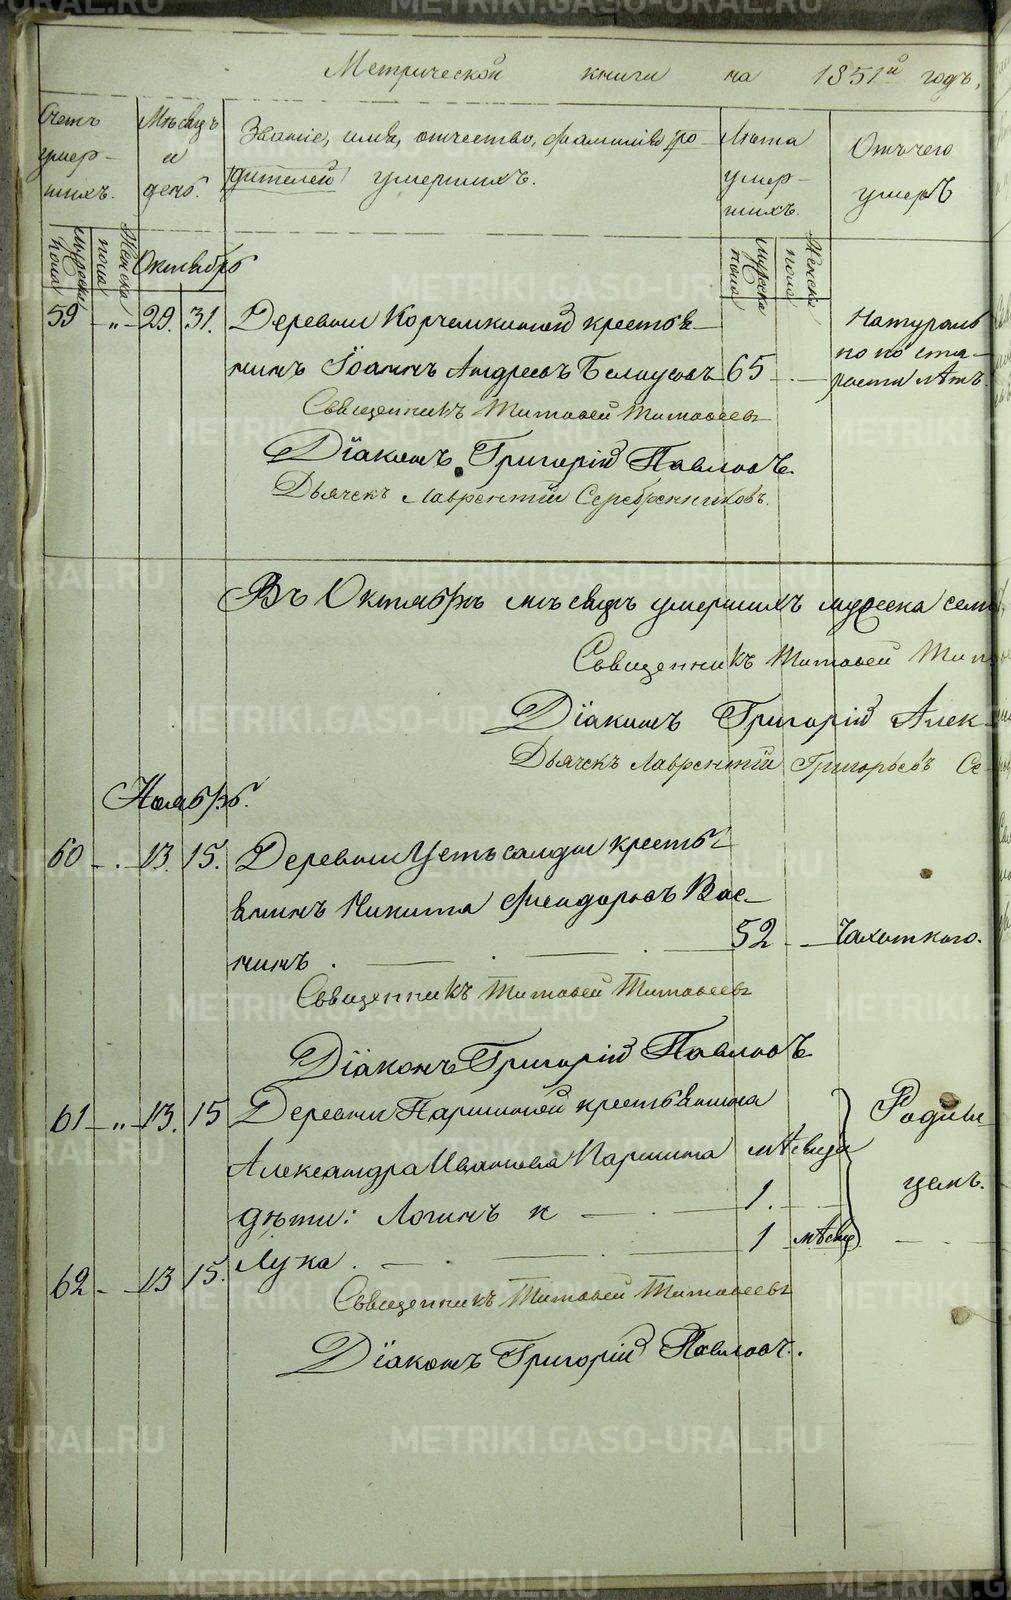 Метрической книги на 1851й годъ,
Счетъ умер- шихъ.
Мѣсяцъ и день.
Званіе, имя, отчество, фамилія ро-
дителей умершихъ.
Лѣта умер- шихъ.
Отъ чего умеръ
Мужска пола
Женска пола
Мужска пола
Женска пола
Октябрь
59 - „ - 29. 31. Деревни Корчемкиной крестья-
нинъ Іоаннъ Андреевъ Белоусовъ 65 - . -
Натураль
но по ста-
рости лѣтъ.
Священникъ Тимофей Тимофеевъ
Діаконъ Григорій Павловъ.
Дьячекъ Лаврентій Серебренниковъ.
Въ Октябрѣ мѣсяцѣ умершихъ мужска семь,
Священникъ Тимофей Тимо
Діаконъ Григорій Алек-
Дьячекъ Лаврентій Григорьевъ Се-
Ноябрь.
60 - . - 13. 15. Деревни Усть салды кресть-
янинъ Никита Феодоровъ Вос-
нинъ . 52 - - Чахоткою.
Священникъ Тимофей Тимофеевъ
Діаконъ Григорій Павловъ
61 - „ - 13. 15 Деревни Паршиной крестьянина
Александра Иванова Паршина мѣсяца
дѣти: Логинъ и 1.
Родим
цемъ.
62 - - 13 15. Лука. 1 мѣсяц
Священникъ Тимофей Тимофеевъ
Діаконъ Григорій Павловъ.
METRIKI.GASO-URAL.RU